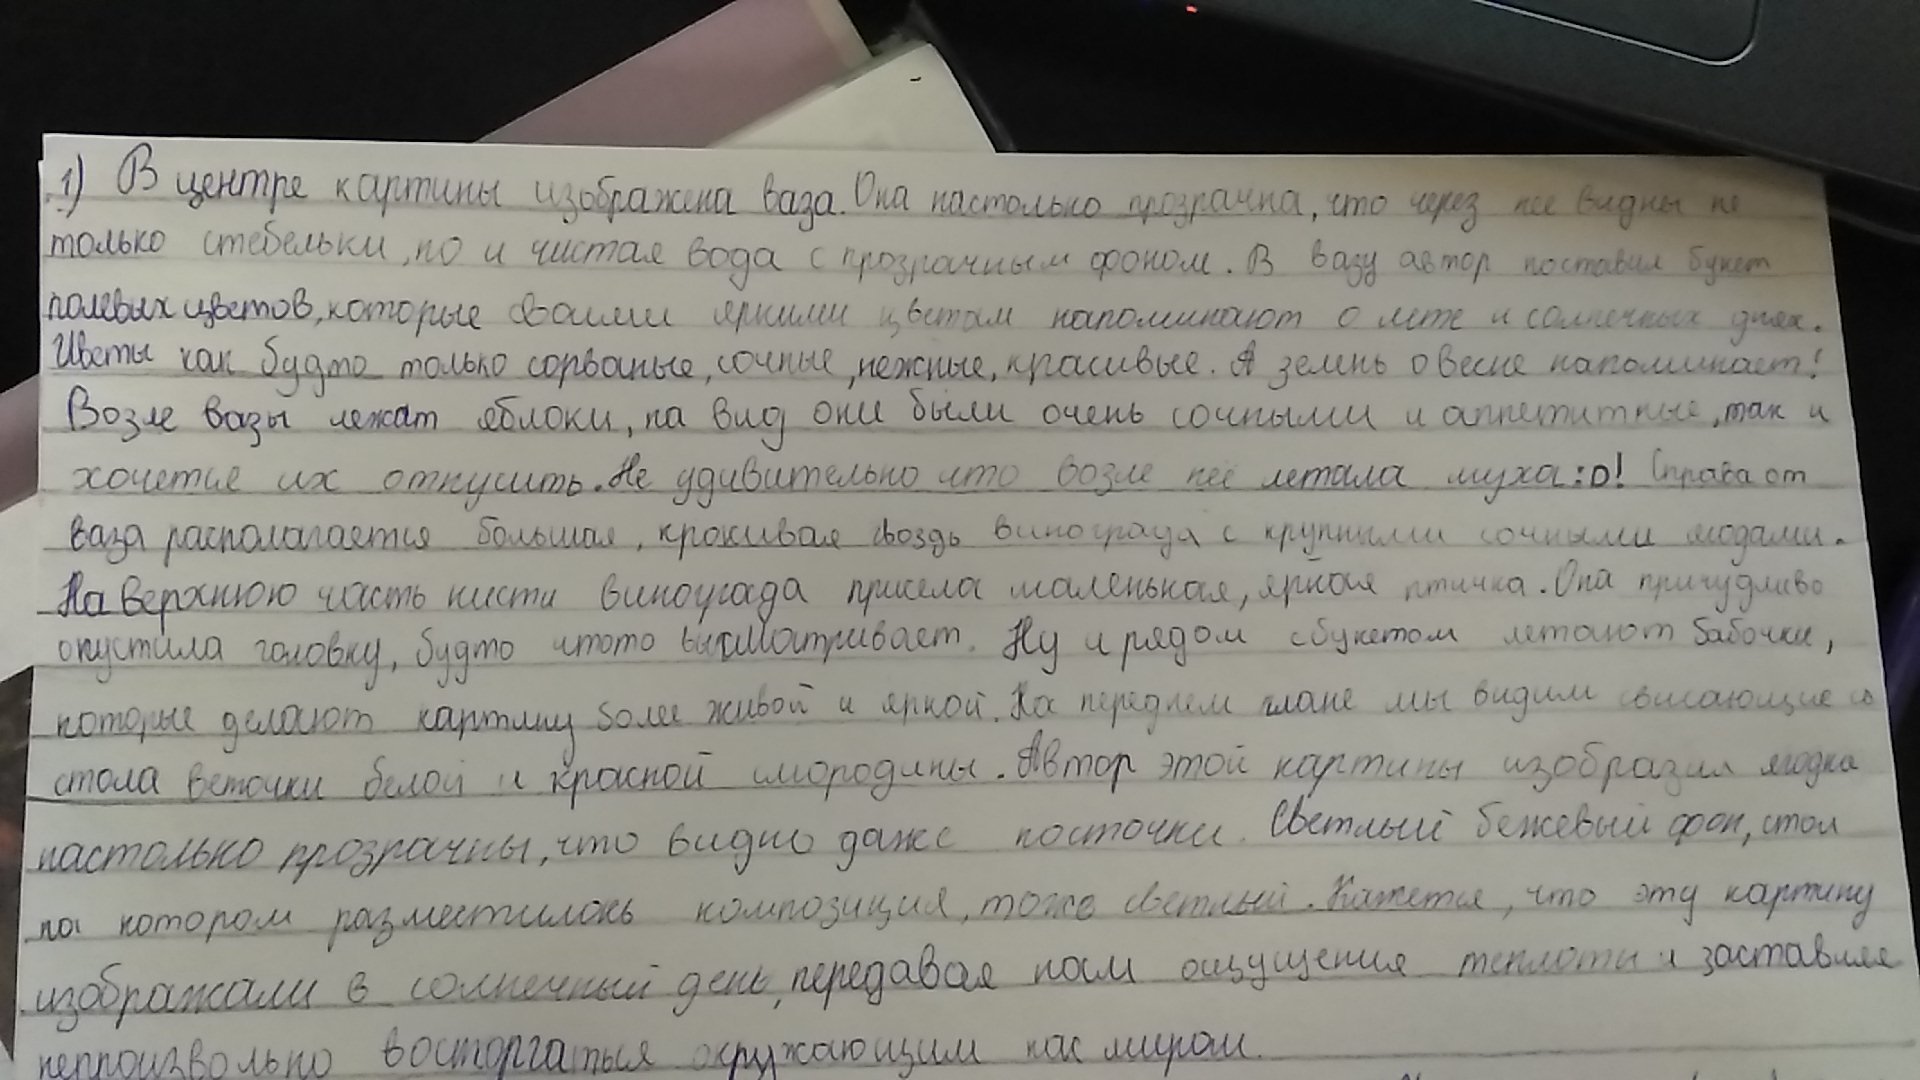 1) В центре картины изображена ваза. Она настолько прозрачна, что через нее видны не
только стебельки, но и чистая вода с прозрачным фоном. В вазу автор поставил букет
полевых цветов, которые своими яркими цветам напоминают о лете и солнечных днях.
Цветы как будто только сорваные, сочные, нежные, красивые. А зелень о весне напоминает!
Возле вазы лежат яблоки, на вид они были очень сочными и аппетитные, так и
хочется их откусить. Не удивительно что возле неё летала муха :D! Справа от
ваза располагается большая, красивая гвоздь винограда с крупными сочными ягодами.
На верхнюю часть кисти винограда присела маленькая, яркая птичка. Она причудливо
опустила головку, будто чтото высматривает. Ну и рядом с букетом летают бабочки,
которые делают картину более живой и яркой. На переднем плане мы видим свисающие со
стола веточки белой и красной смородины. Автор этой картины изобразил ягодка
настолько прозрачны, что видно даже косточки. Светлый бежевый фон, стол
на котором разместилось композиция, тоже светлый. Кажется, что эту картину
изображали в солнечный день, передавая нам ощущения теплоты и заставляя
непроизвольно восторгаться окружающим нас миром.